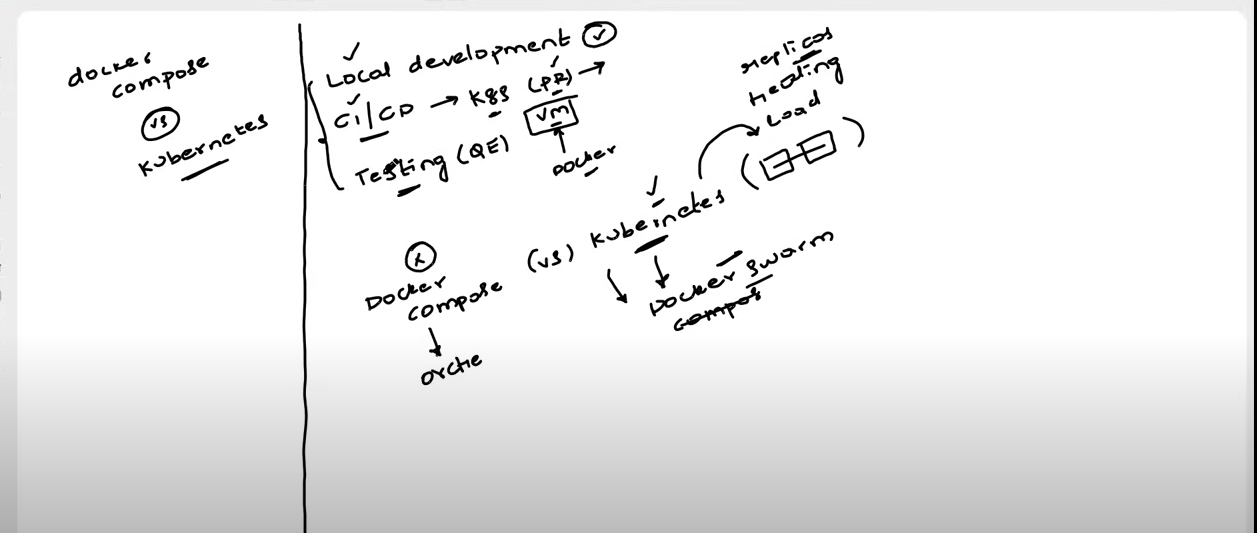 docker
compose
vs
Kubernetes
Local development
CI/CD → K8s (PR) →
Testing (QE)
VM
Docker
replicas
healing
Load
Docker
compose
(vs) Kubernetes
Docker Swarm
compos
orche